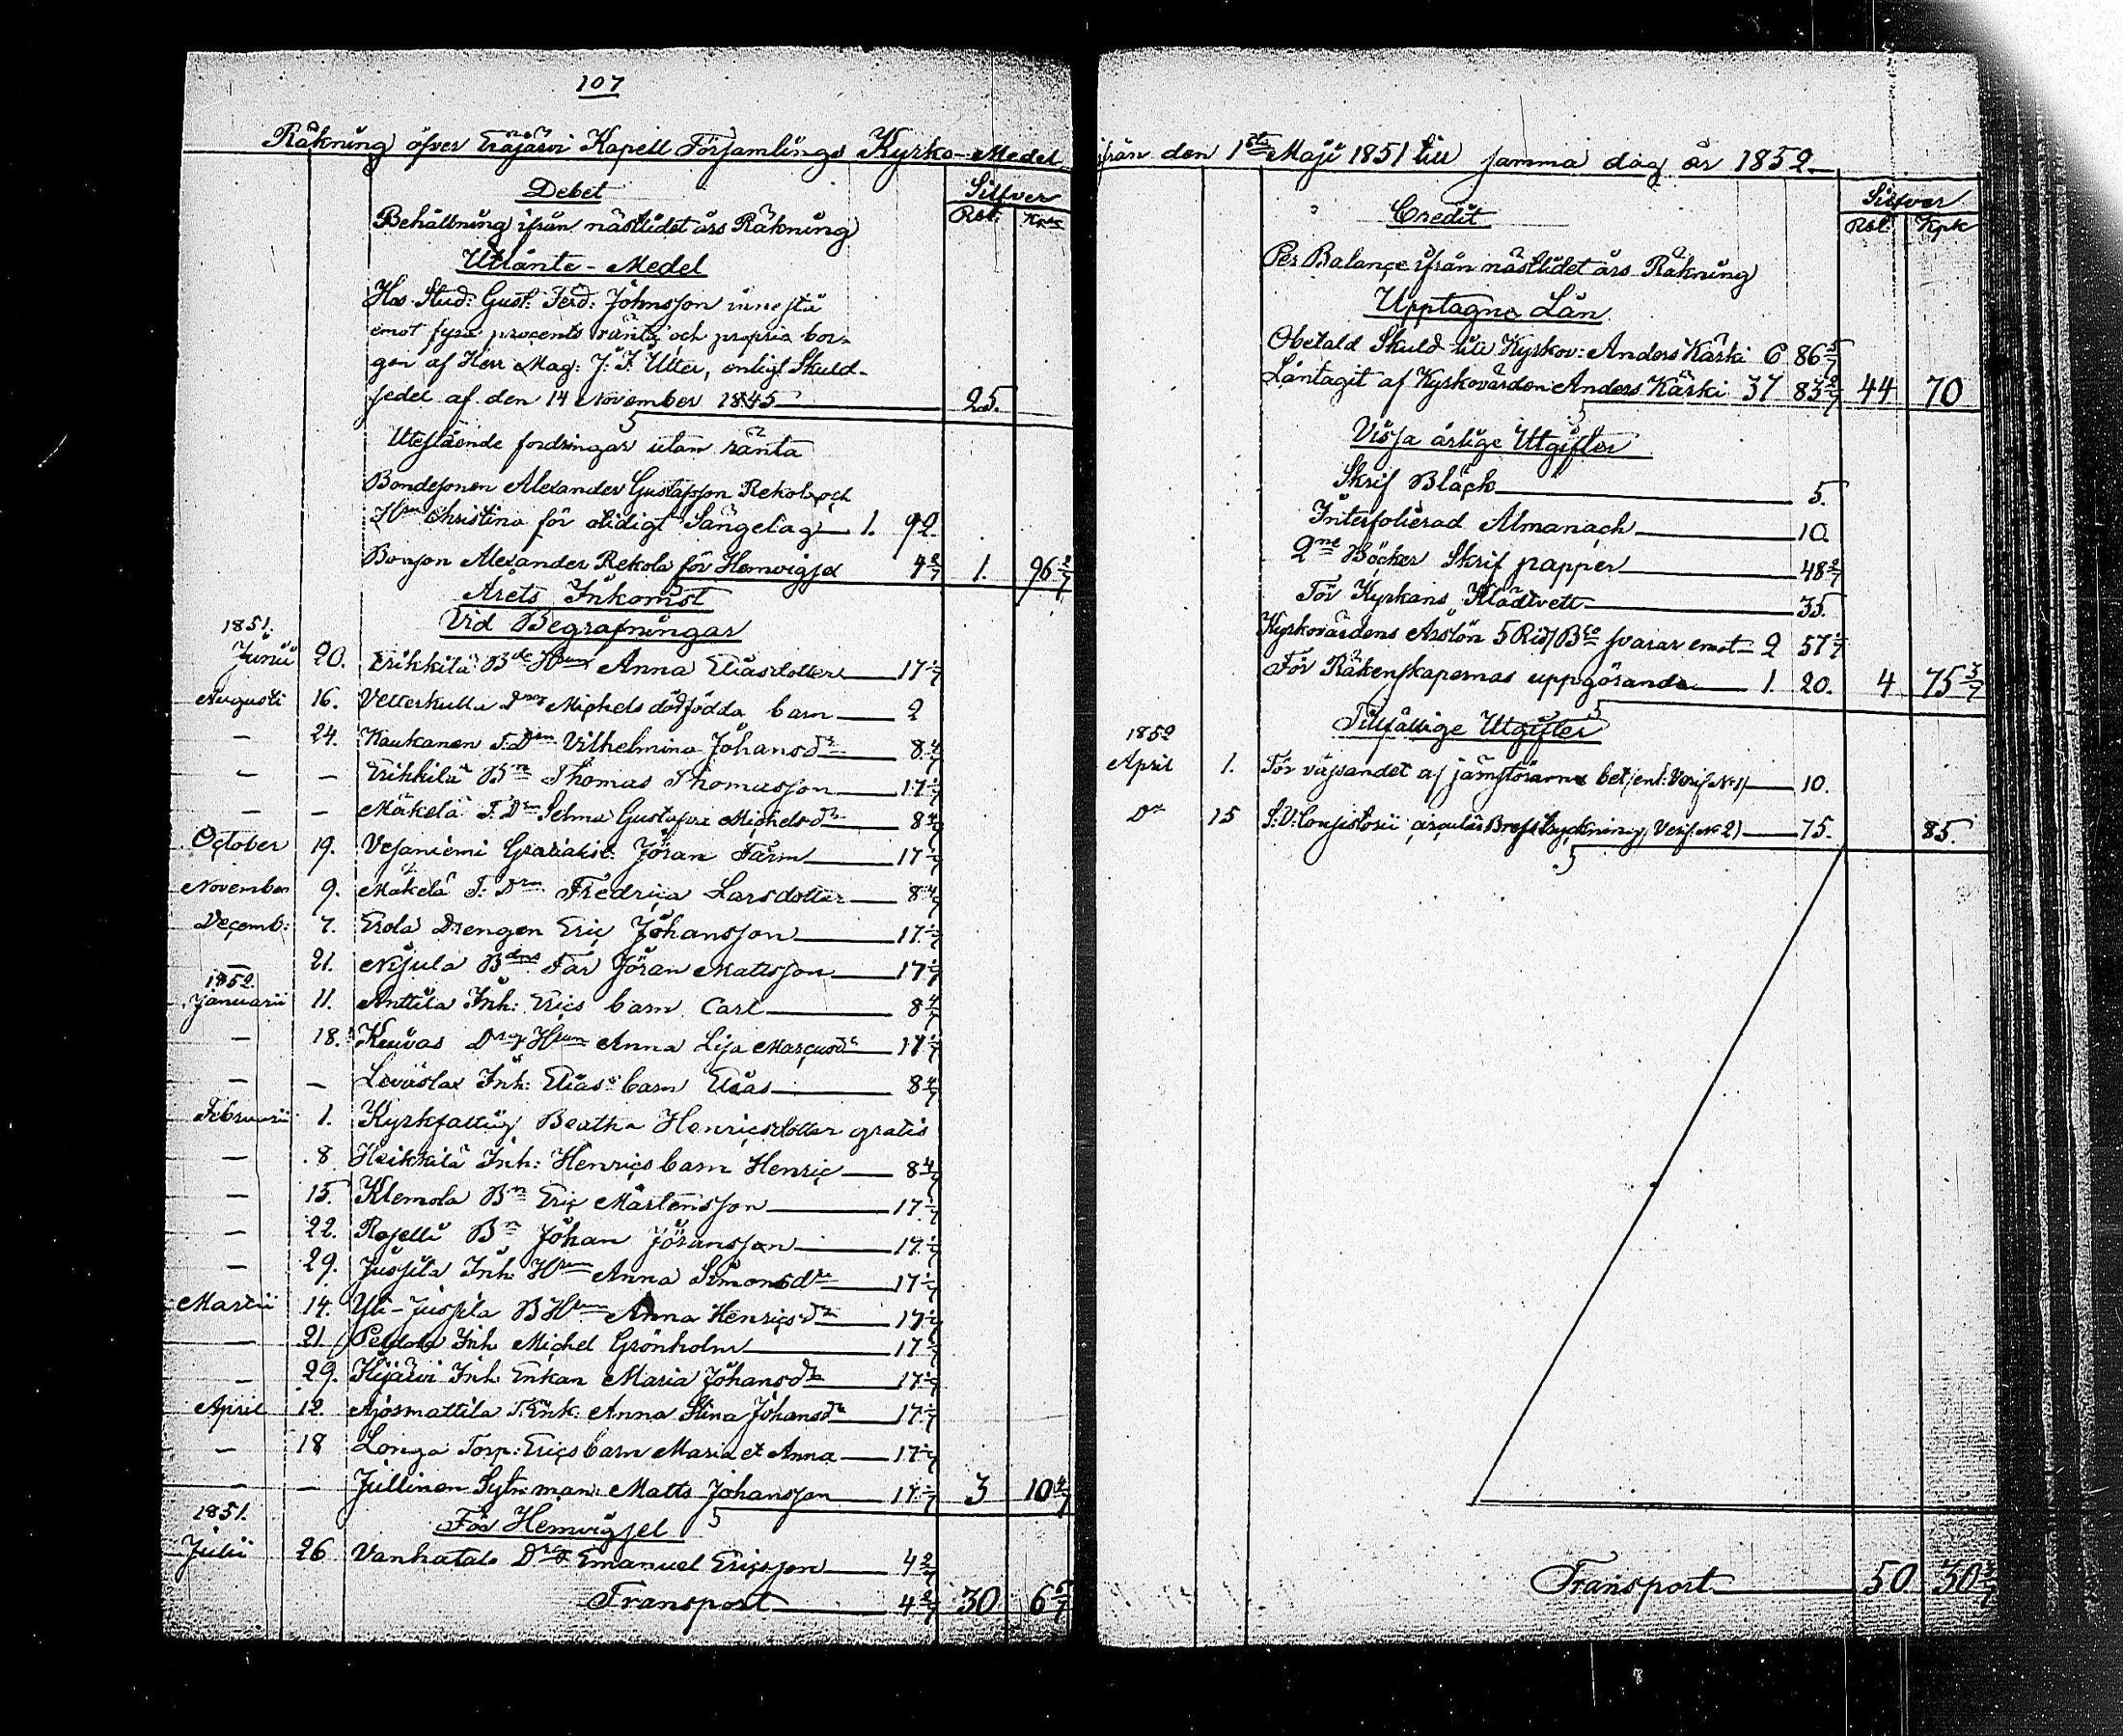 107
Räkning öfver Eräjärvi Kapell Församlings Kyrko-Medel
Debet
Silfver
Rbl. Kpk
Behållning ifrån nästlidet års Räkning
Utlånte-Medel
Hos Stud: Gust: Ferd: Johnsson innestå
emot fyra procents ränta och propria bor-
gen af Herr Mag: J: F: Utter, enligt Skuld-
sedel af den 14 November 1845 25.
Utestående fordringar utan ränta
Bondesonen Alexander Gustafsson Rekola och
Christina för otidigt Sängelag 1. 92.
Bonson Alexander Rekola för Hemvigsel 4 2/7 1. 96 2/7
Årets Inkomst
Vid Begrafningar
1851.
Junii 20. Erikkilä Anna Eliasdotter 17 1/7
Augusti 16. Vetterkulla Michels dödfödda barn 2
— 24. Kaukanen T: Drn Vilhelmina Johansdr 8 4/7
— — Erikkilä Bn Thomas Thomasson 17 1/7
— — Mäkelä T: Drn Selma Gustafva Michelsdr 8 4/7
October 19. Vesaniemi Jöran Färm 17 1/7
November 9. Mäkelä T: Drn Fredrica Larsdotter 8 4/7
Decemb: 7. Erola Drengen Eric Johansson 17 1/7
— 21. Nijula Bdns Far Jöran Mattsson 17 1/7
1852.
Januarii 11. Anttila Inh: Erics barn Carl 8 4/7
— 18. Kuivas Anna Lisa Marcusdr 17 1/7
— — Leväslax Inh: Elias barn Elias 8 4/7
Februarii 1. Kyrkfattig Beatha Henricsdotter gratis
— 8 Heikkilä Inh: Henrics barn Henric 8 4/7
— 15. Klemola Bn Eric Mårtensson 17 1/7
— 22. Rajelli Bn Johan Jöransson 17 1/7
— 29. Jussila Inh: Anna Simonsdr 17 1/7
Martii 14. Yli-Jussila Anna Henricsdr 17 1/7
— 21 Peltola Inh Michel Grönholm 17 1/7
— 29. Inh: Enkan Maria Johansdr 17 1/7
April 12. Ajosmattila T. Enk: Anna Stina Johansdr 17 1/7
— 18 Longa Torp: Erics barn Maria et Anna 17 1/7
— — Jullinen Sytn: man: Matts Johansson 17 1/7 3 10 4/7
1851.
För Hemvigsel
Julii 26 Vanhatalo Drg Emanuel Ericsson 4 2/7
Transport 4 2/7 30 6 6/7
ifrån den 1sta Maji 1851 till samma dag år 1852
Credit
Silfver
Rbl. Kpk
Per Balance ifrån nästlidet års Räkning
Upptagne Lån
Obetald Skuld till Kyrkov: Anders Kärki 6 86 5/7
Låntagit af Kyrkovärden Anders Kärki 37 83 2/7 44 70
Vissa årlige Utgifter
Skrif Bläck 5.
Interfolierad Almanach 10.
2ne Böcker Skrif papper 48 2/7
För Kyrkans Klädtvett 35.
Kyrkovärdens Årslön 5 Rid/Bco svarar emot 2 57 1/7
För Räkenskapernas uppgörande 1. 20. 4 75 3/7
Tillfällige Utgifter
1852
April 1. För af betj: enl: Verif. No 1) 10.
Do 15 circulär Brefs tryckning, Verif. No 2) 75. 85.
Transport 50 30 3/7